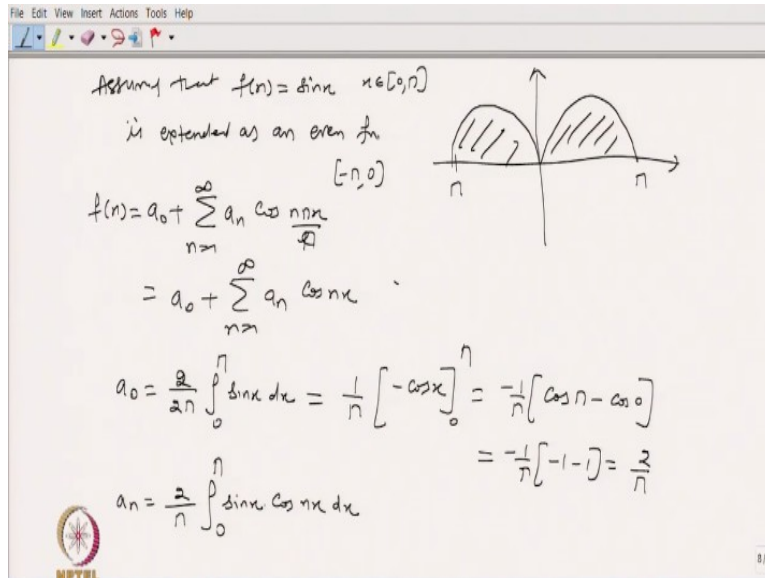 File Edit View Insert Actions Tools Help
Assume that f(x) = sinx x∈[0,π]
is extended as an even fn
[-π,0)
π π
f(x) = a₀ + ∑_{n=1}^{∞} aₙ cos nπx/π
= a₀ + ∑_{n=1}^{∞} aₙ cosnx
a₀ = 2/2π ∫₀^π sinx dx = 1/π [-cosx]₀^π = -1/π [cosπ - cos0]
= -1/π [-1-1] = 2/π
aₙ = 2/π ∫₀^π sinx cosnx dx
NPTEL
8/